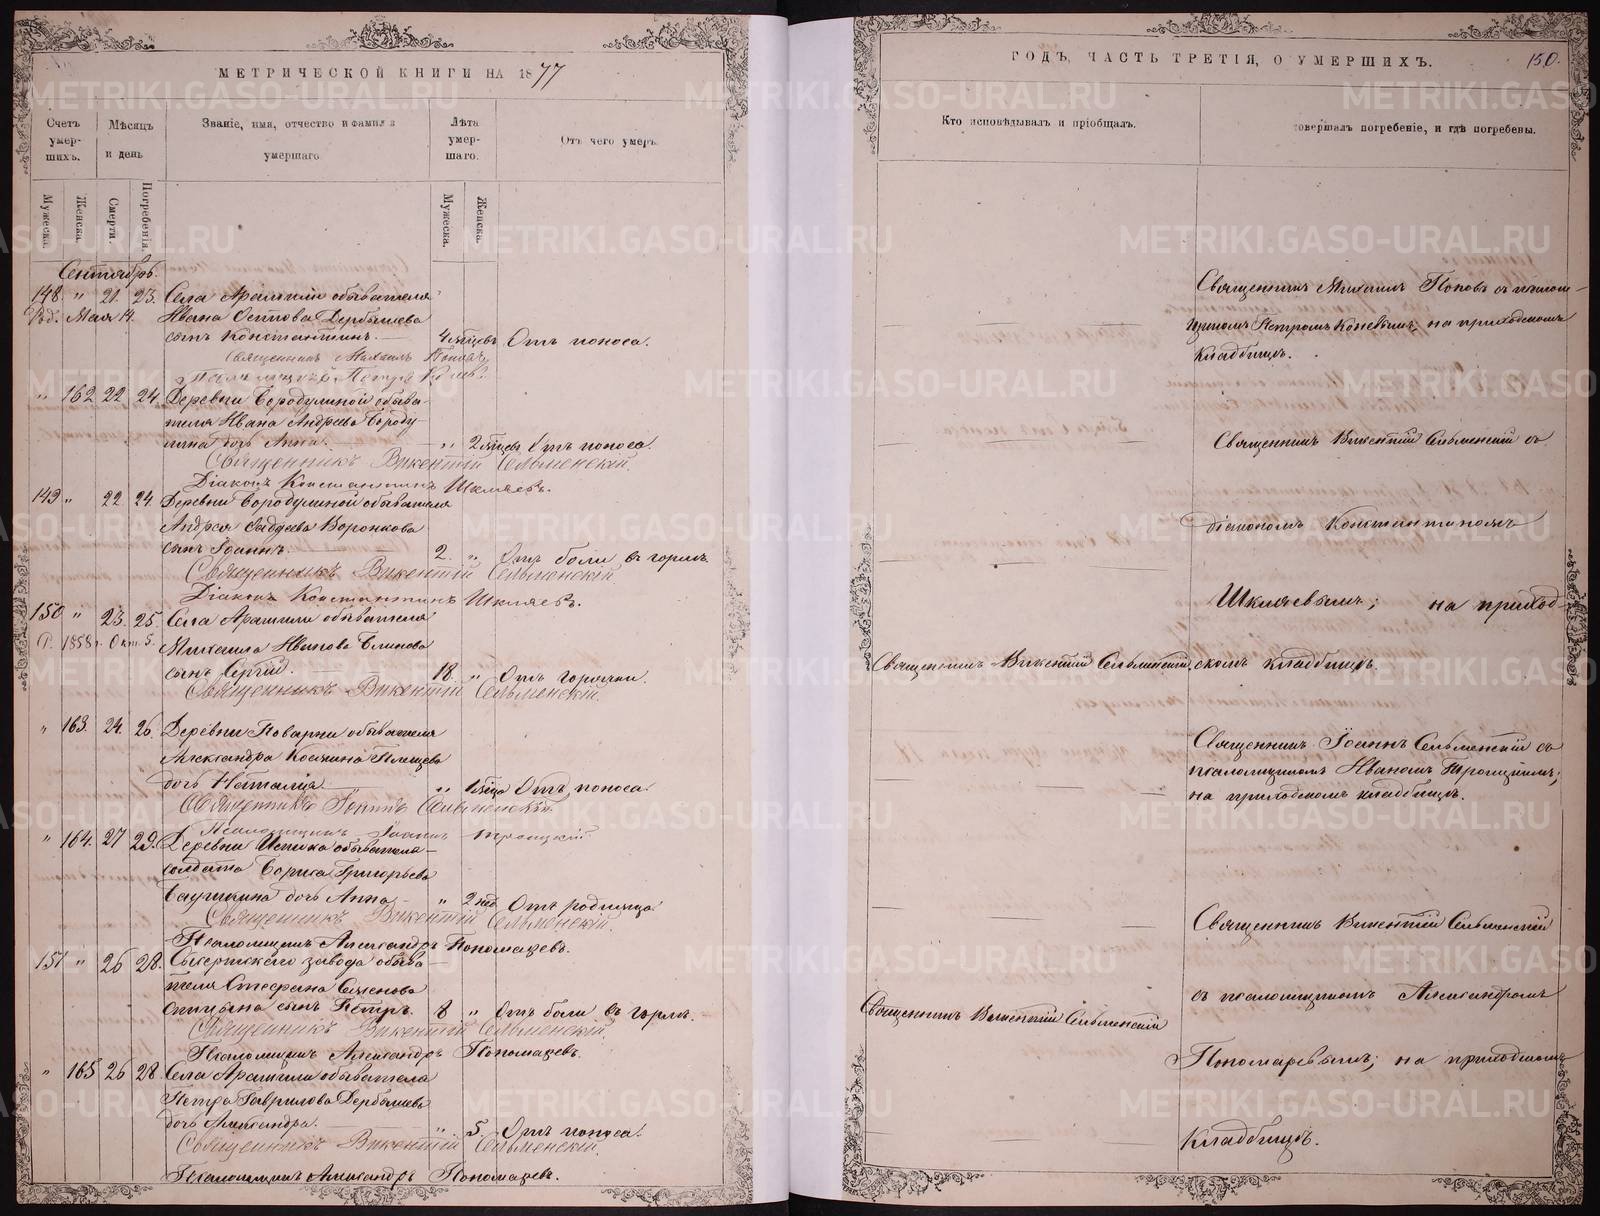 МЕТРИЧЕСКОЙ КНИГИ НА 1877
Счетъ умер-шихъ.
Мѣсяцъ и день
Званіе, имя, отчество и фамилія умершаго.
Лѣта умер-шаго.
Отъ чего умеръ.
Мужеска. Женска. Смерти. Погребенія. Мужеска. Женска.
Сентябрь.
148. " 21. 23. Села Арамили обывателя
Род. Мая 14. Ивана Дербышева
сынъ Константинъ. 4 мѣсяцевъ Отъ поноса.
Священникъ Михаилъ Поповъ
Псаломщикъ Петръ Коневъ
" 162 22 24. Деревни Бородулиной обыва-
теля Ивана Андреева Бороду-
лина дочь Анна. " 2 мѣсяца Отъ поноса.
Священникъ Викентій Сельменскій.
Діаконъ Константинъ Шкляевъ.
149 " 22 24. Деревни Бородулиной обывателя
Андрея Фаддеева Воронкова
сынъ Іоаннъ. 2. " Отъ боли въ горлѣ.
Священникъ Викентій Сельменскій
Діаконъ Константинъ Шкляевъ.
150 " 23. 25. Села Арамили обывателя
Р. 1858 г. Окт. 5. Михаила Иванова Блинова
сынъ Сергій. 18. " Отъ горячки.
Священникъ Викентій Сельменскій.
" 163. 24. 26. Деревни Поварни обывателя
Александра Плещева
дочь Наталія " мѣсяца Отъ поноса.
Священникъ Іоаннъ Сельменскій.
Псаломщикъ Іоаннъ Троицкій.
" 164. 27 29. Деревни Истока обывателя-
солдата Бориса Григорьева
дочь Анна " 2 нед. Отъ родимца.
Священникъ Викентій Сельменскій.
Псаломщикъ Александръ Пономаревъ.
151 " 26 28. Сысертскаго завода обыва-
теля Стефана Семенова
сынъ Петръ. 8 " Отъ боли въ горлѣ.
Священникъ Викентій Сельменскій.
Псаломщикъ Александръ Пономаревъ.
" 165 26 28. Села Арамили обывателя
Петра Гаврилова Дербышева
дочь Александра. " 5. Отъ поноса.
Священникъ Викентій Сельменскій.
Псаломщикъ Александръ Пономаревъ.
ГОДЪ, ЧАСТЬ ТРЕТІЯ, О УМЕРШИХЪ.
150.
Кто исповѣдывалъ и пріобщалъ.
совершалъ погребеніе, и гдѣ погребены.
Священникъ Михаилъ Поповъ съ псалом-
щикомъ Петромъ Коневымъ; на приходскомъ
кладбищѣ.
Священникъ Викентій Сельменскій съ
діакономъ Константиномъ
Шкляевымъ; на приход-
Священникъ Викентій Сельменскій
скомъ кладбищѣ.
Священникъ Іоаннъ Сельменскій съ
псаломщикомъ Иваномъ Троицкимъ;
на приходскомъ кладбищѣ.
Священникъ Викентій Сельменскій
съ псаломщикомъ Александромъ
Священникъ Викентій Сельменскій
Пономаревымъ; на приходскомъ
кладбищѣ.
METRIKI.GASO-URAL.RU